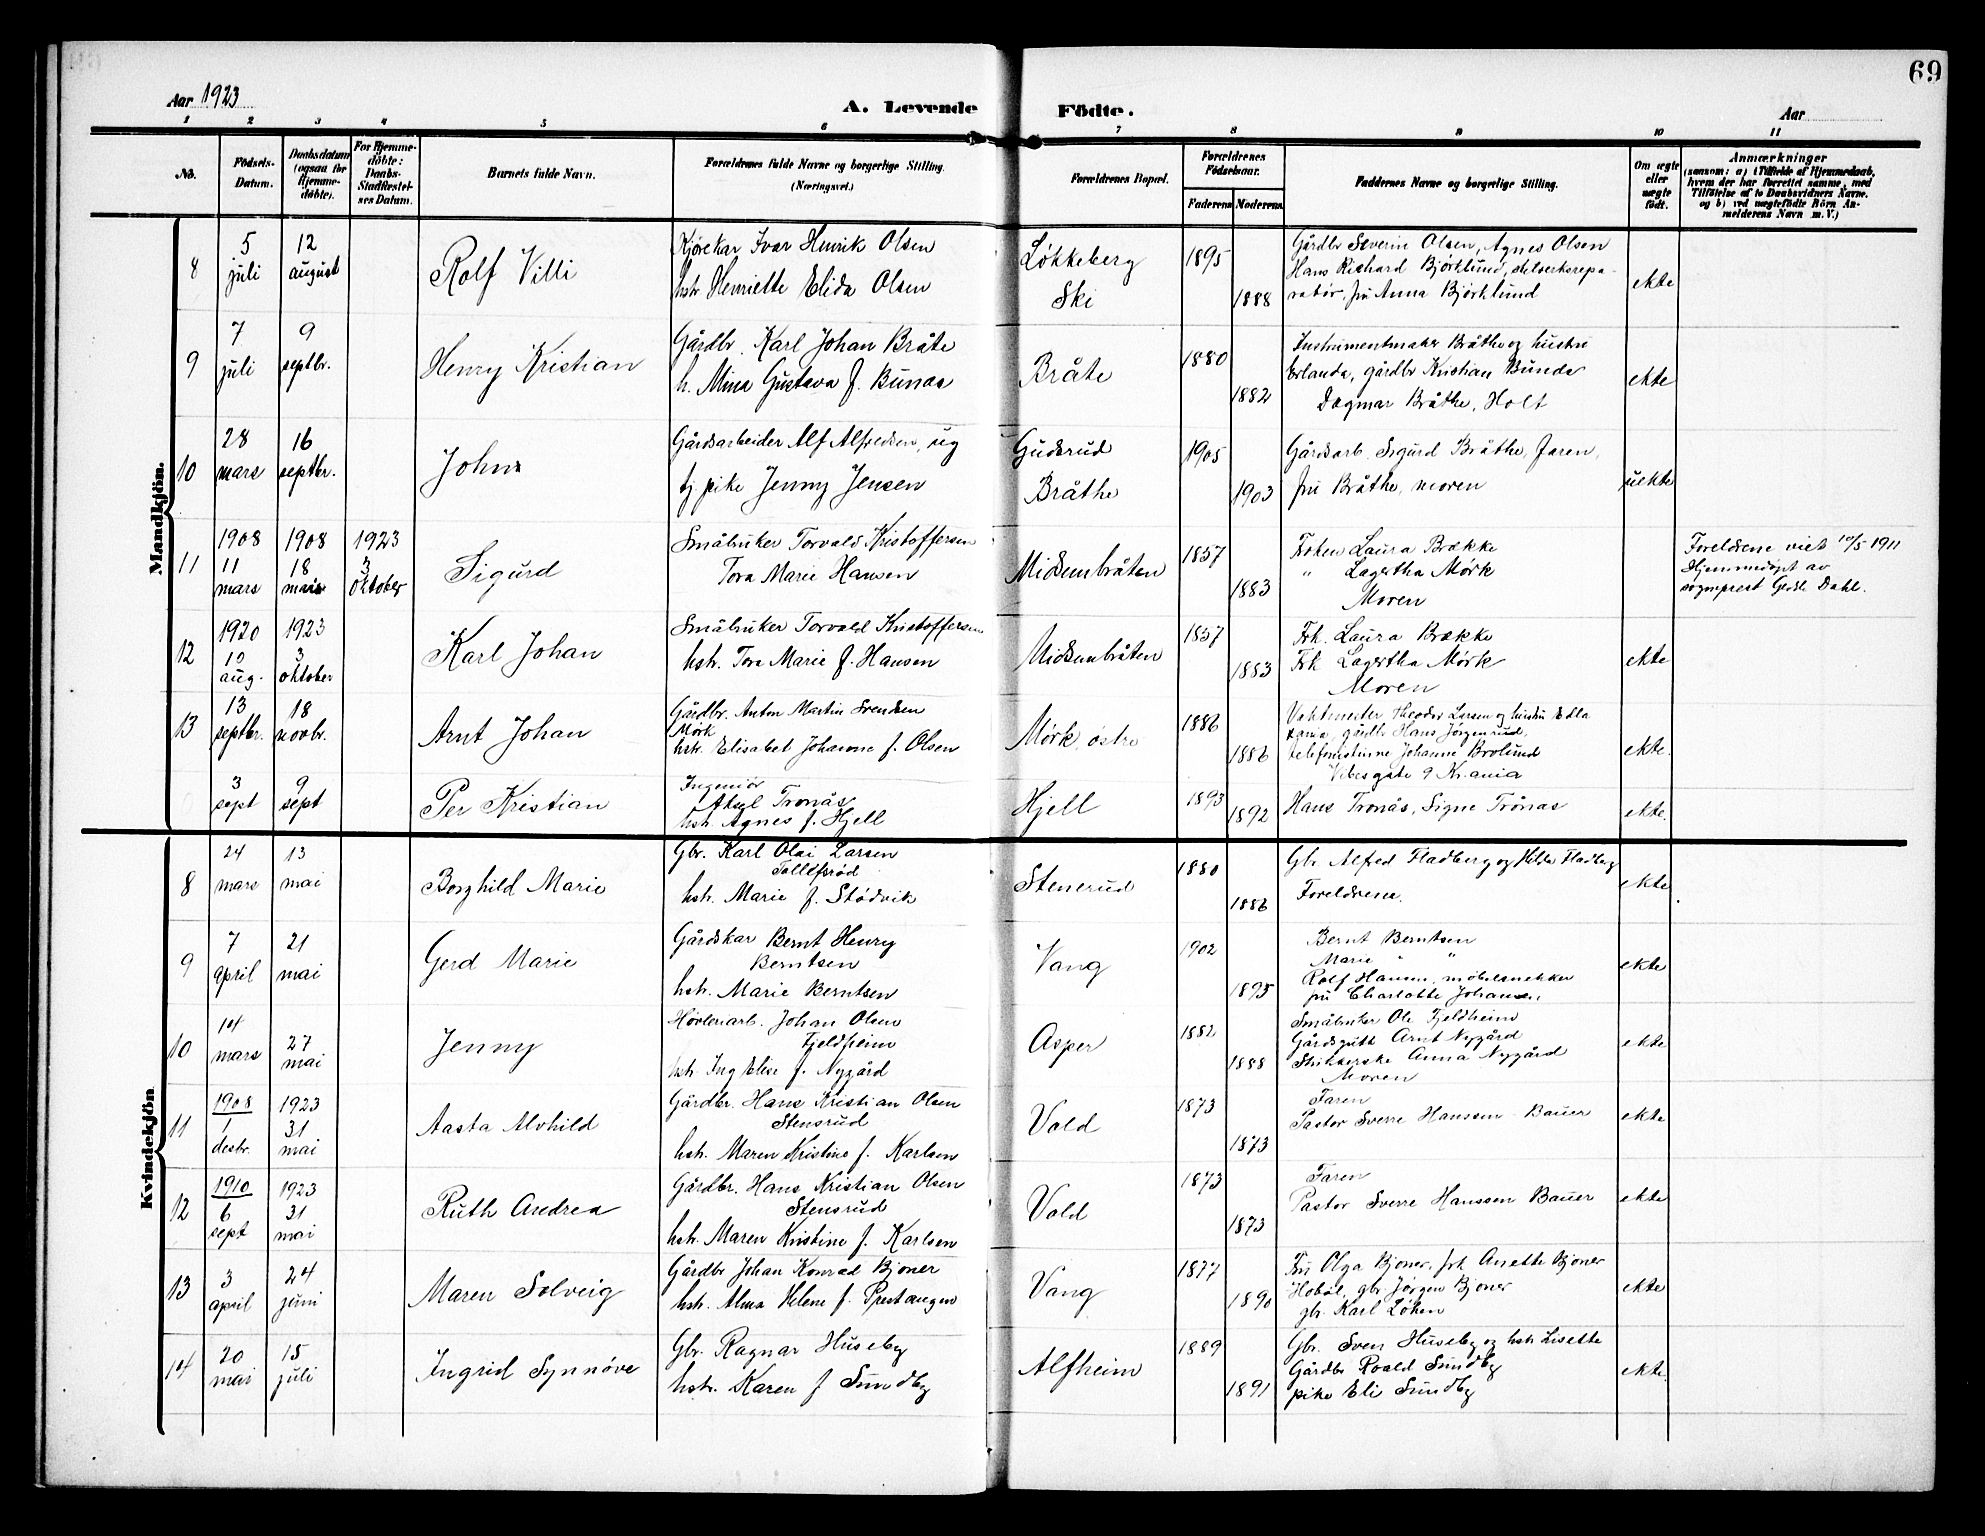 69
Aar 1923
A. Levende Födte.
Aar
1 2 3 4 5 6 7 8 9 10 11
No.
Födsels-
Datum.
Daabsdatum
(ogsaa for
Hjemme-
döbte).
For Hjemme-
döbte:
Daabs-
Stadfæstel-
ses Datum.
Barnets fulde Navn.
Forældrenes fulde Navne og borgerlige Stilling.
(Næringsvei.)
Forældrenes Bopæl.
Forældrenes
Födselsaar.
Faderens Moderens
Faddernes Navne og borgerlige Stilling.
Om ægte
eller
uægte
födt.
Anmærkninger
(saasom: a) i Tilfælde af Hjemmedaab,
hvem der har forrettet samme, med
Tilföielse af to Daabsvidners Navne.
og b) ved uægtefödte Börn An-
melderens Navn m. V.)
Mandkjön.
8
5
juli
12
august
Rolf Villi
Kjørekar Ivar Henrik Olsen
hstr. Henriette Elida Olsen
Løkkeberg
Ski
1895
1888
Gårdbr Severin Olsen, Agnes Olsen
Hans Richard Bjørklund,
fru Anna Bjørklund
ekte
9
7
juli
9
septbr.
Henry Kristian
Gårdbr. Karl Johan Bråte
h. Mina Gustava f. Bunas
Bråte
1880
1882
Instrumentmaker Bråthe og hustru
Erlanda, gårdbr Kristian Bunds
Dagmar Bråthe, Holt
ekte
10
28
mars
16
septbr.
John
Gårdsarbeider Alf Alfredsen, ug
tj pike Jenny Jensen
Gudsrud
Bråthe
1905
1903
Gårdsarb. Sigurd Bråthe, faren,
fru Bråthe, moren
uekte
11
1908
11
mars
1908
18
mars
1923
3
oktober
Sigurd
Småbruker Torvald Kristoffersen
Tora Marie Hansen
Midsumbråten
1857
1883
Frøken Laura Brække
" Lagertha Mørk
Moren
Foreldrene viet 10/5 1911
Hjemmedøpt av
sogneprest Dahl.
12
1920
10
aug.
1923
3
oktober
Karl Johan
Småbruker Torvald Kristoffersen
hstr. Tora Marie f. Hansen
Midsumbråten
1857
1883
Frk. Laura Brække
Frk Lagertha Mørk
Moren
ekte
13
13
septbr.
18
novbr.
Arnt Johan
Gårdbr. Anton Martin Svendsen
Mørk
hstr. Elisabet Johanne f. Olsen
Mørk østre
1886
1886
Vaktmester Theodor Larsen og hustru Edla
gårdbr Hans Jørgensrud,
telefonistinne Johanne Brolund
Vibesgate 9 Kr.ania
ekte.
3
sept
9
sept
Per Kristian
Ingeniör
Aksel Tronås
hstr. Agnes f. Hjell
Hjell
1893
1892
Hans Tronås, Signe Tronås
ekte.
Kvindekjön
8
24
mars
13
mai
Borghild Marie
Gbr. Karl Olai Larsen
Tollefsröd
hstr. Marie f. Stødvik
Stenerud
1880
1886
Gbr Alfred Fladberg og Hilda Fladberg
Foreldrene.
ekte
9
7
april
21
mai
Gerd Marie
Gårdskar Bernt Henry
Berntsen
hstr. Marie Berntsen
Vang
1902
1895
Bernt Berntsen
Marie "
Rolf Hansen, møbelsnekker
fru Charlotte Johansen,
ekte
10
14
mars
27
mai
Jenny
Høvleriarb. Johan Olsen
Fjeldheim
hstr. Ing Elise f. Nygård
Asper
1882
1888
Småbruker Ole Fjeldheim
Gårdsgutt Arnt Nygård
Strikkerske Anna Nygård
Moren
ekte
11
1908
1
desbr.
1923
31
mai
Aasta Alvhild
Gårdbr. Hans Kristian Olsen
Stensrud
hstr. Maren Kristine f. Karlsen
Vold
1873
1873
Faren
Pastor Sverre Hanssen Bauer
ekte
12
1910
6
sept
1923
31
mai
Ruth Andrea
Gårdbr. Hans Kristian Olsen
Stensrud
hstr. Maren Kristine f. Karlsen
Vold
1873
1873
Faren
Pastor Sverre Hanssen Bauer
ekte
13
3
april
24
juni
Maren Solveig
Gårdbr Johan Konrad Bjoner
hstr. Alma Helene f. Prestangen
Vang
1877
1890
Fru Olga Bjoner, frk Anette Bjoner
Hobøl, gbr Jørgen Bjoner
gbr. Karl Løken
ekte
14
20
mai
15
juli
Ingrid Synnöve
Gbr. Ragnar Huseby
hstr. Karen f Sundby
Alfheim
1889
1891
Gbr. Sven Huseby og hstr Lisette
Gårdbr Roald Sundby
pike Eli Sundby
ekte.